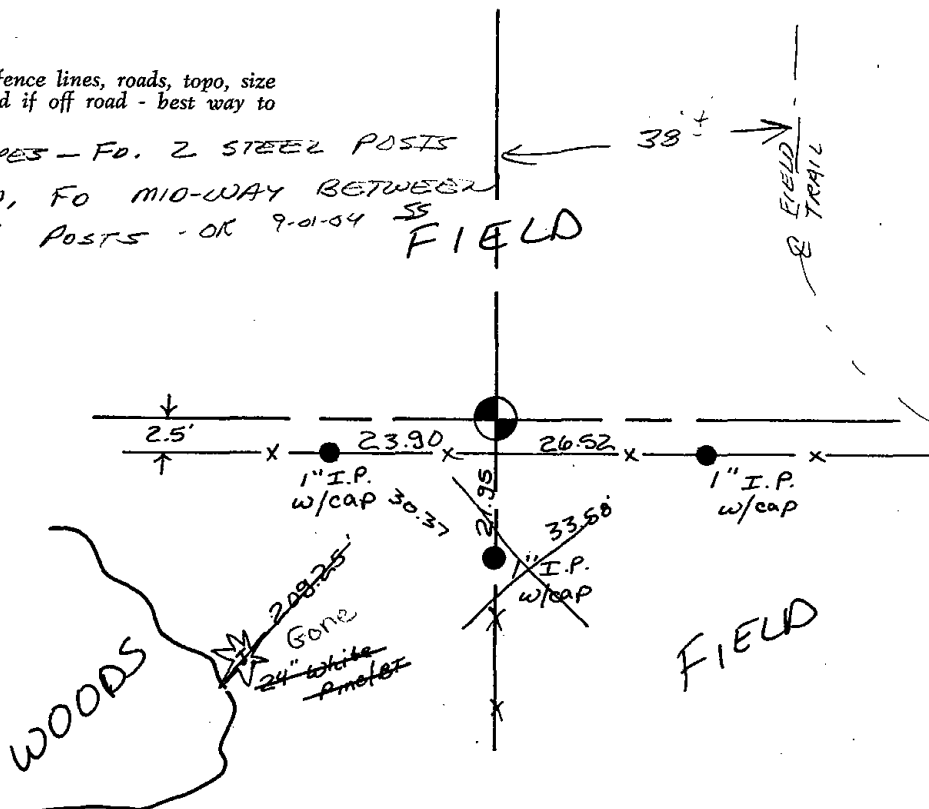 fence lines, roads, topo, size
d if off road - best way to
PES - FD. 2 STEEL POSTS
, FD MID-WAY BETWEEN
POSTS - OK 9-01-04 SS
38' ±
℄ FIELD
TRAIL
FIELD
2.5'
23.90
26.52
1" I.P.
w/cap
1" I.P.
w/cap
30.37
21.95
33.58'
1" I.P.
w/cap
208.25'
Gone
24" White
Pine/BT
WOODS
FIELD